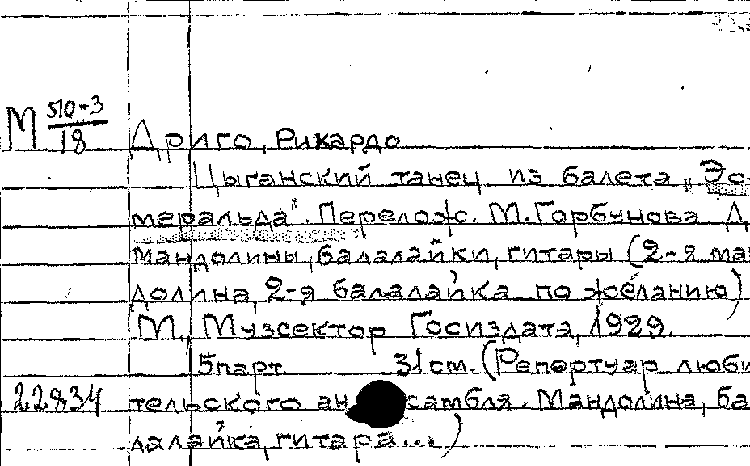 М 510-3/18 Дриго, Рикардо
Цыганский танец из балета „Эс-
меральда". Перелож. М. Горбунова Д
мандолины, балалайки, гитары (2-я ман
долина, 2-я балалайка по желанию)
М., Музсектор Госиздата, 1929.
5 парт. 31 см. (Репертуар люби
22834 тельского ансамбля. Мандолина, ба
лалайка, гитара...)